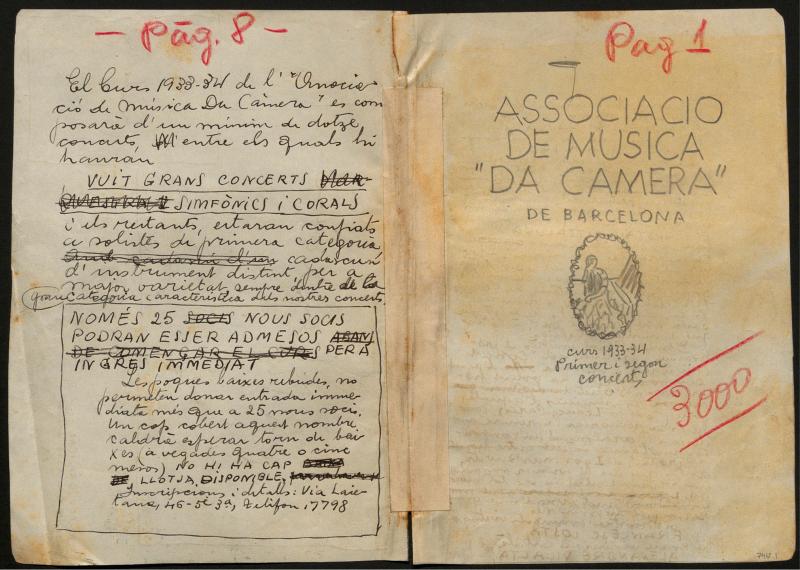 - Pág. 8 -
El Curs 1933-34 de l' "Associa-
ció de Música Da Càmera" es com
posarà d'un mínim de dotze
concerts, entre els quals hi
hauran
VUIT GRANS CONCERTS
SIMFÒNICS i CORALS
i els restants, estaran confiats
a solistes de primera categoria
cadascun
d'instrument distint, per a
major varietat, sempre dintre de la
gran categoria característica dels nostres concerts.
NOMÉS 25 SOCIS NOUS SOCIS
PODRAN ESSER ADMESOS ABANS
DE COMENÇAR EL CURS PERA
INGRÉS IMMEDIAT
Les poques baixes rebudes, no
permeten donar entrada imme-
diata més que a 25 nous socis.
Un cop cobert aquest nombre
caldrà esperar torn de bai-
xes (a vegades quatre o cinc
mesos) NO HI HA CAP
LLOTJA DISPONIBLE,
Inscripcions i detalls: Via Laie-
tana, 46-5è 3ª, Telèfon 17798
Pag 1
ASSOCIACIO
DE MUSICA
"DA CAMERA"
DE BARCELONA
curs 1933-34
Primer i segon
concerts
3000